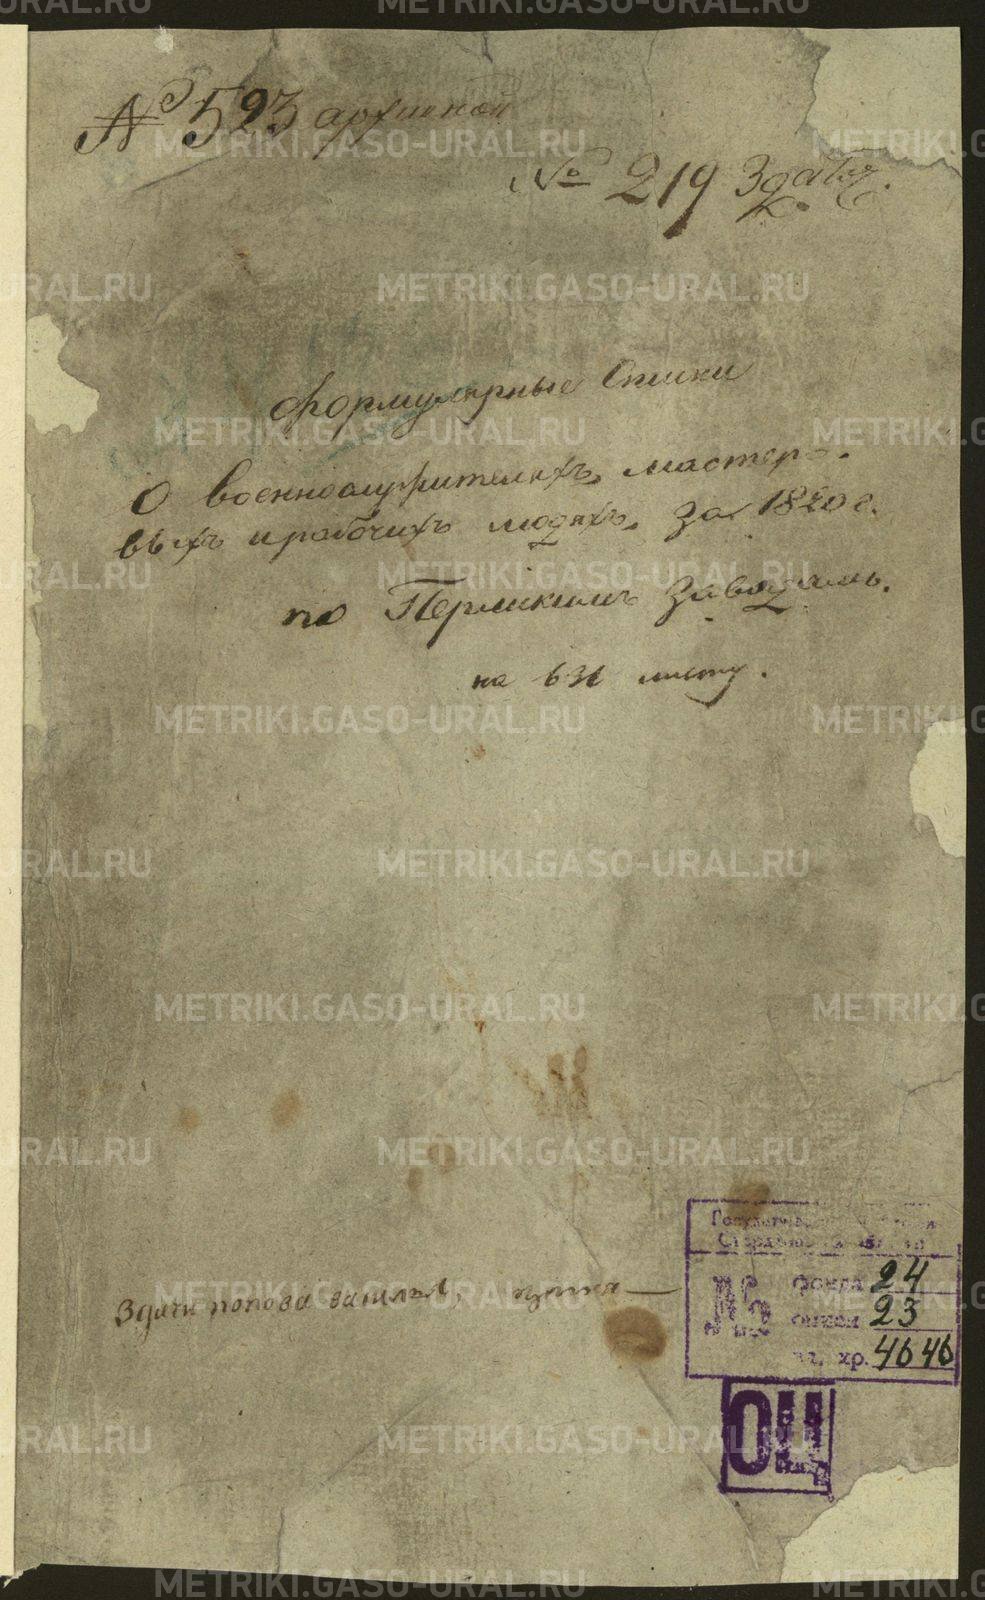 № 523 архивной
№ 219 Здаточ.
Формулярные Списки
О военнослужителяхъ, мастеро-
выхъ и рабочихъ людяхъ, за 1820 г.
по Пермскимъ Заводамъ.
на 631 листу.
Здачи попова василья,
Государственный архив
Свердловской области
№ фонда 24
описи 23
ед. хр. 4646
ОЦ
METRIKI.GASO-URAL.RU